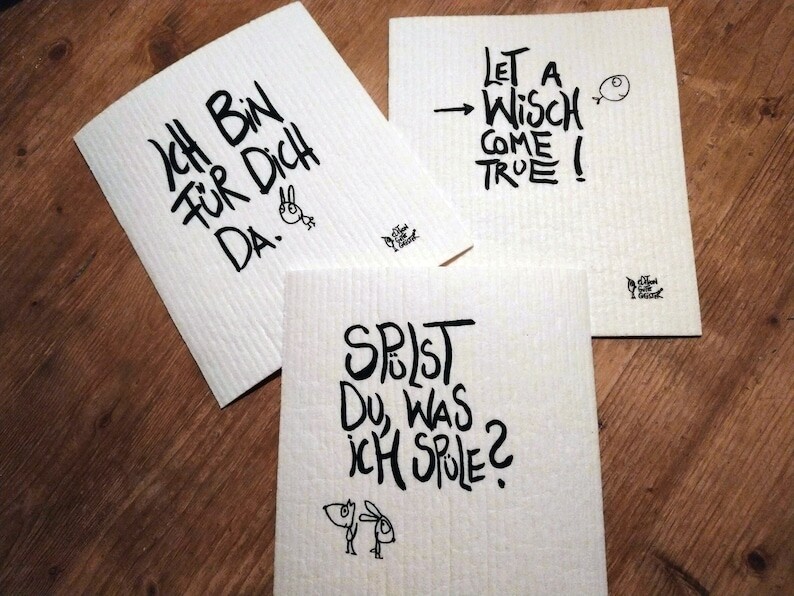 ICH BIN
FÜR DICH
DA.
EDITION
GUTE
GEISTER
LET A
→ WISCH
COME
TRUE!
EDITION
GUTE
GEISTER
SPÜLST
DU, WAS
ICH SPÜLE?